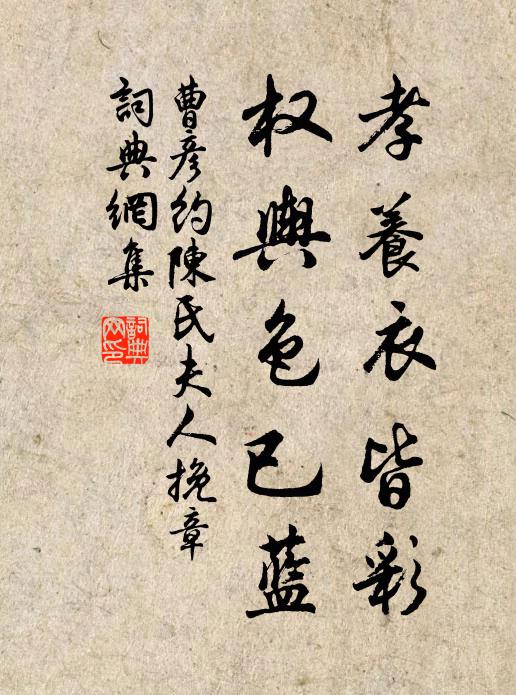 孝養衣皆彩
权輿色已藍
曹彦約陳氏夫人挽章
詞典網集
詞典網印